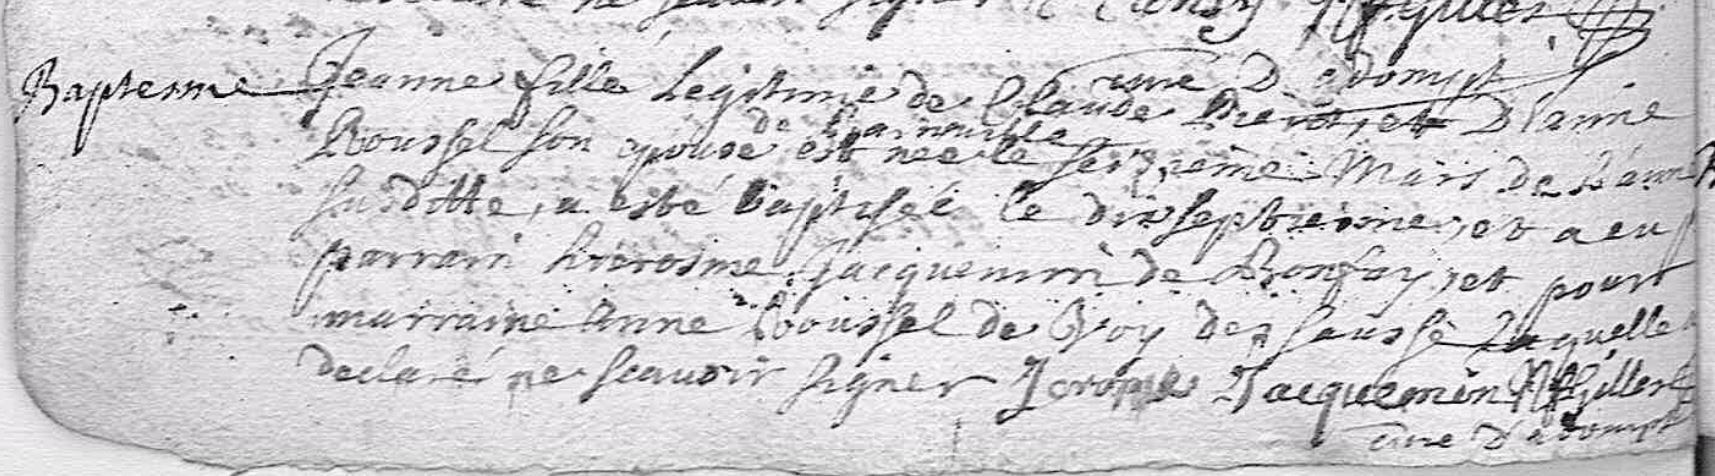 ne signer
curé D adompt
Baptesme Jeanne fille Legitime de Claude et D'anne
de
Roussel son epouse est nee le seizieme Mars de L'ann
susditte, a esté baptisée le dix septiesme, et a eu
parrain hierosme Jacquemin de Bonfay, et pour
marraine Anne Roussel de laquelle
declaré ne scavoir signer Jerome Jacquemin
curé D'adompt